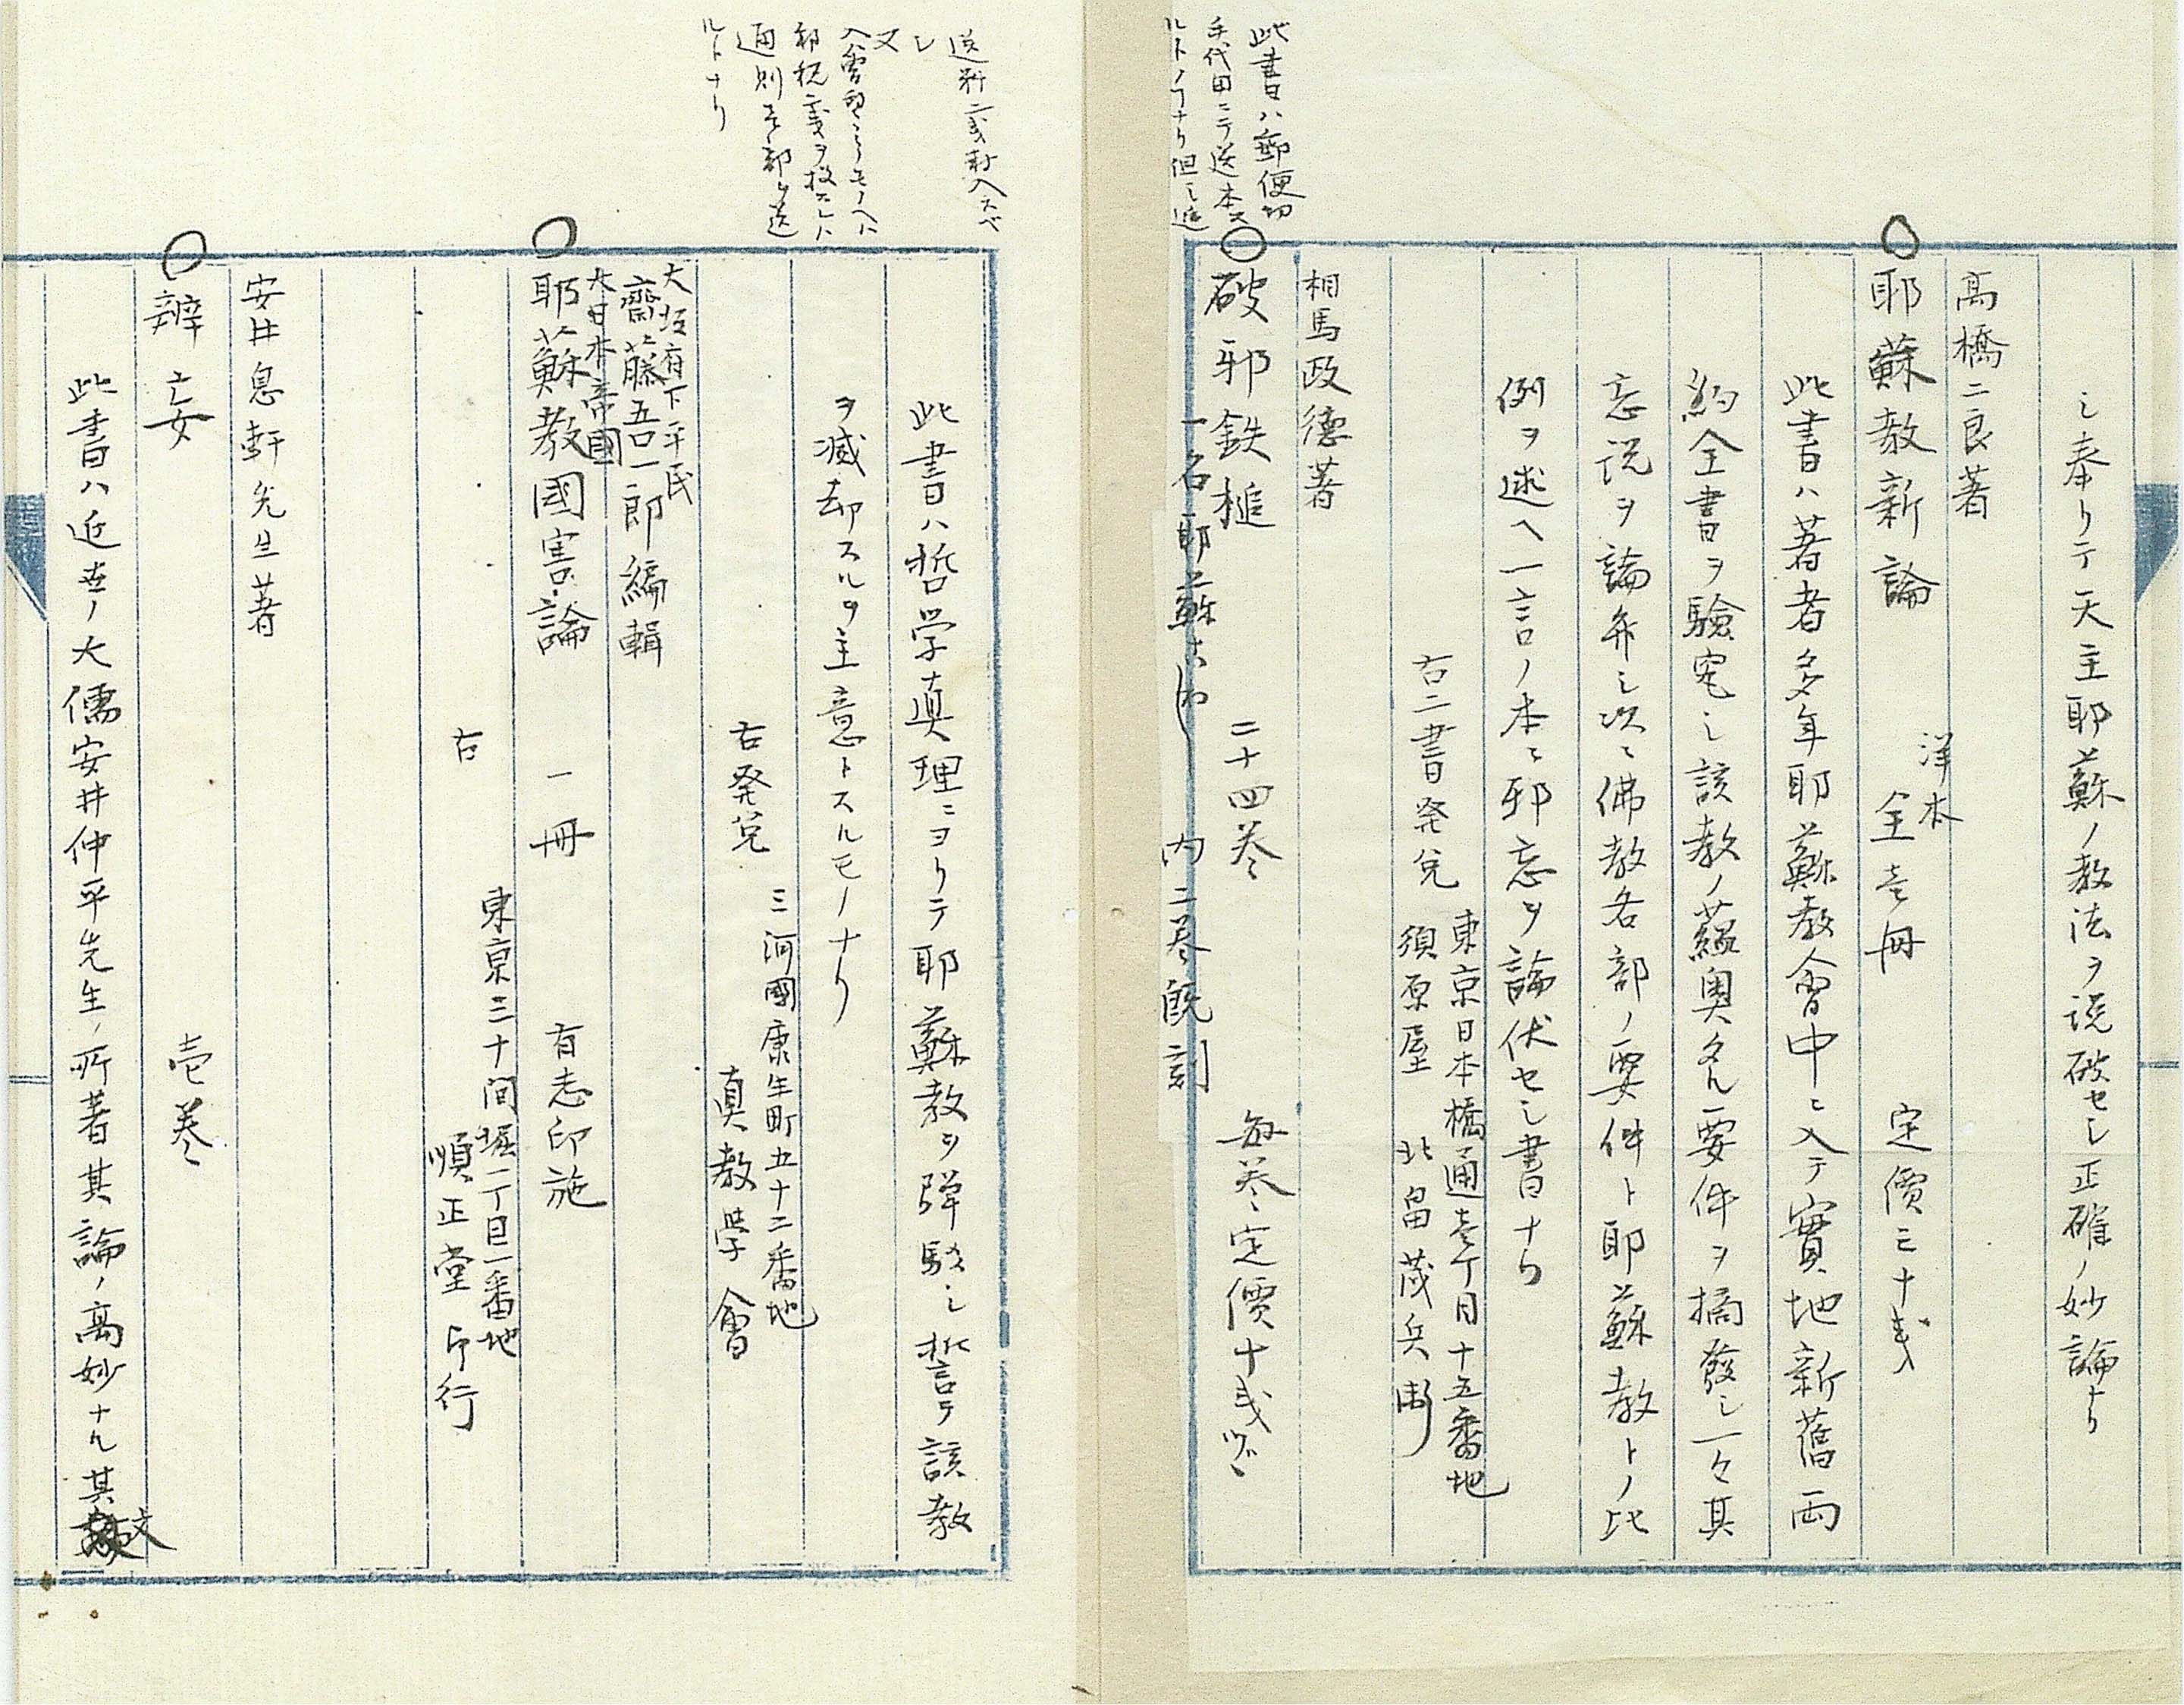 シ奉リテ天主耶蘇ノ教法ヲ説破セシ正確ノ妙論ナリ
高橋二良著
耶蘇教新論 洋本全壱冊 定價三十戋
此書ハ著者多年耶蘇教會中ニ入テ實地新舊両
約全書ヲ驗究シ該教ノ蘊奥タル要件ヲ摘發シ一々其
忘説ヲ論弁シ次ニ佛教各部ノ要件ト耶蘇教トノ比
例ヲ述ヘ一言ノ本ニ邪忘ヲ論伏セシ書ナリ
東京日本橋通壱丁目十五番地
右二書発兌 須原屋 北畠茂兵衛
相馬政德著
此書ハ郵便切
手代田ニテ送本ス
ルトノコナリ但シ遞
破邪鉄槌 二十四巻 毎巻定價十戋ヅヽ
一名耶蘇 内二巻既刻
送料二戋封入スベ
シ
又
入會
郵税二戋ヲ
通則全部ヲ送
ルトナリ
此書ハ哲学真理ニヨリテ耶蘇教ヲ弾駁シ誓テ該教
ヲ滅却スルヲ主意トスルモノナリ
三河國康生町五十二番地
右発兌 真教学會
大坂府下平民
齋藤吾一郎編輯
大日本帝國
耶蘇教國害論 一冊 有志印施
東京三十間堀一丁目一番地
右 順正堂印行
安井息軒先生著
辨妄 壱巻
此書ハ近世ノ大儒安井仲平先生ノ所著其論ノ高妙ナル其文